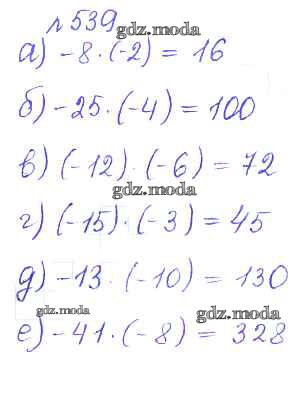 №539
gdz.moda
а) -8 · (-2) = 16
б) -25 · (-4) = 100
в) (-12) · (-6) = 72
gdz.moda
г) (-15) · (-3) = 45
д) -13 · (-10) = 130
gdz.moda gdz.moda
е) -41 · (-8) = 328